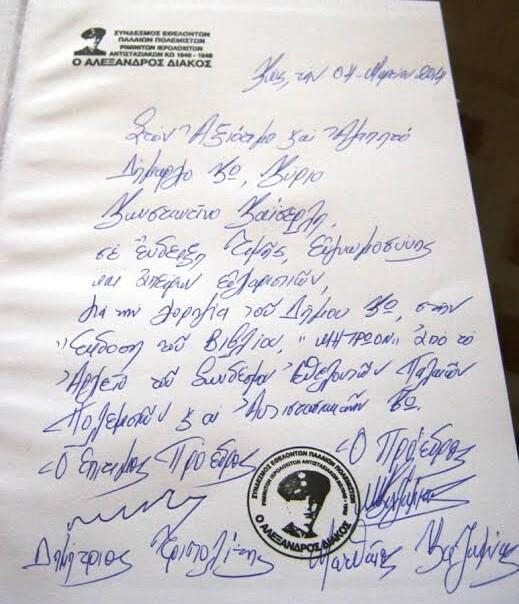 ΣΥΝΔΕΣΜΟΣ ΕΘΕΛΟΝΤΩΝ
ΠΑΛΑΙΩΝ ΠΟΛΕΜΙΣΤΩΝ
ΡΙΜΙΝΙΤΩΝ ΙΕΡΟΛΟΧΙΤΩΝ
ΑΝΤΙΣΤΑΣΙΑΚΩΝ ΚΩ 1940 - 1948
Ο ΑΛΕΞΑΝΔΡΟΣ ΔΙΑΚΟΣ
Κως, την 04 - Μαρτίου 2014
Στον Ἀξιότιμο και Ἀγαπητό
Δήμαρχο Κω, Κύριο
Κωνσταντίνο Καΐσερλη,
σέ Ἔνδειξη Τιμής, Εὐγνωμοσύνης
και Ἀπείρων εὐχαριστιών,
για την χορηγία τοῦ Δήμου Κω, στην
Ἔκδοση τοῦ Βιβλίου, "ΜΗΤΡΩΟΝ" Ἀπό το
Ἀρχείο τοῦ Συνδέσμου Ἐθελοντών Παλαιών
Πολεμιστών και Ἀντιστασιακών Κω.
Ὁ Ἐπίτιμος Πρόεδρος Ὁ Πρόεδρος
ΣΥΝΔΕΣΜΟΣ ΕΘΕΛΟΝΤΩΝ ΠΑΛΑΙΩΝ ΠΟΛΕΜΙΣΤΩΝ
ΡΙΜΙΝΙΤΩΝ ΙΕΡΟΛΟΧΙΤΩΝ ΑΝΤΙΣΤΑΣΙΑΚΩΝ
Ο ΑΛΕΞΑΝΔΡΟΣ ΔΙΑΚΟΣ
Δημήτριος